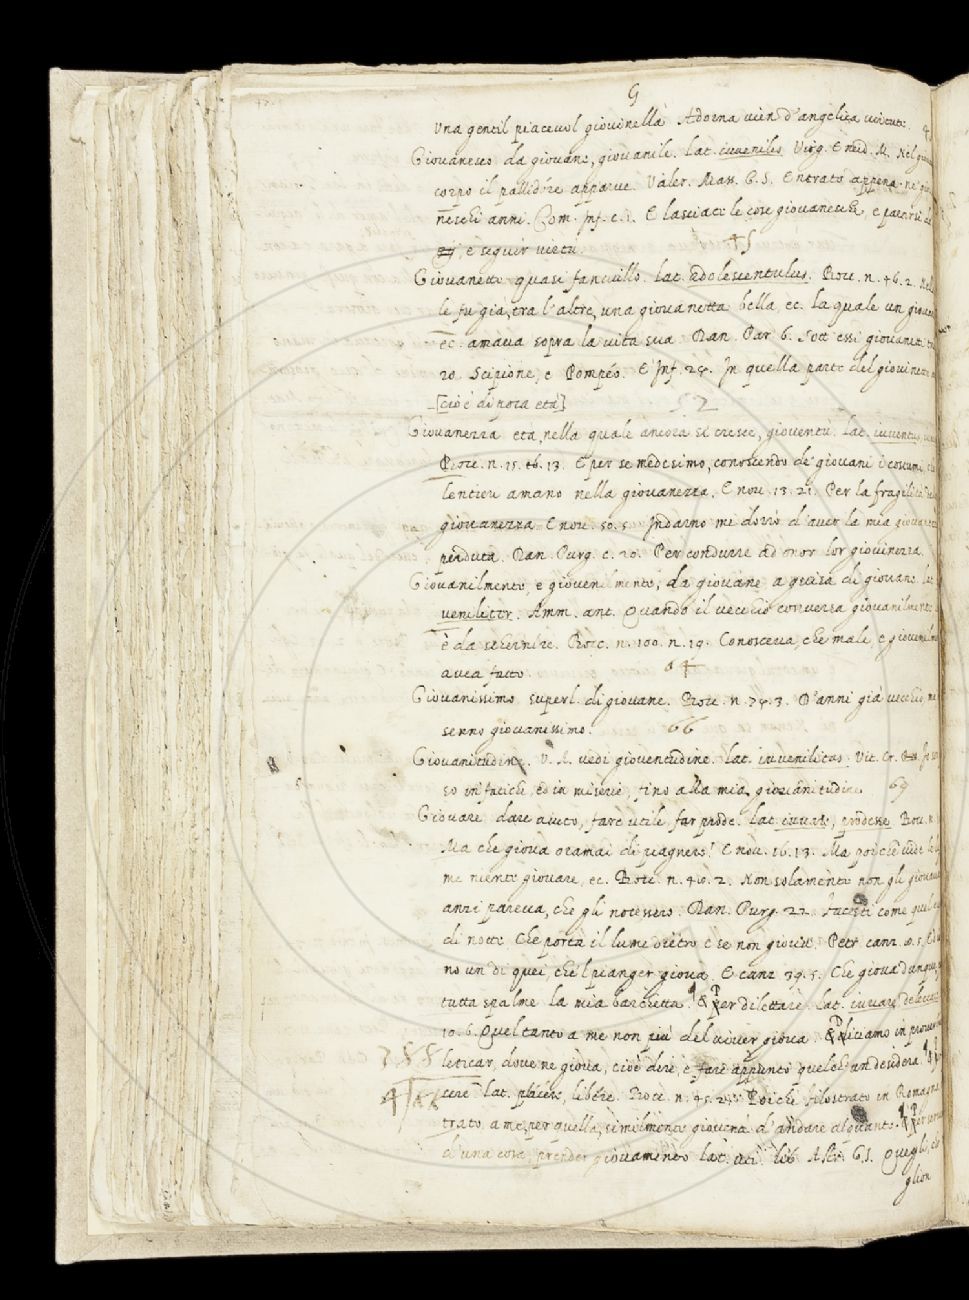 G
Una gentil piacevol giovinella Adorna vien d'angelica virtute. 4
Giovanesco da giovane, giovanile. Lat. iuvenilis Virg. Eneid. M. Nel
corpo il pallidore apparve. Valer. Mass. 6. 5. Entrato appena ne'
neschi anni. Com. Inf. c. 1. E lasciate le cose giovanesche, e
e seguir virtù. 45
Giovanetto quasi fanciullo. Lat. adolescentulus. Bocc. n. 46. 2.
le fu già, tra l'altre, una giovanetta bella, ec. la quale un
ec. amava sopra la vita sua Dan. Par 6. Sott' essi giovanetti
ro Scipione, e Pompeo. E Inf. 24. In quella parte del giovinetto
[cioè di poca età] 52
Giovanezza età, nella quale ancora si cresce, gioventù. Lat. iuventus,
Bocc. n. 15. 13. E per se medesimo, conoscendo de' giovani i costumi,
lentieri amano nella giovanezza. E nov. 13. 21. Per la fragilità
giovanezza E nov. 50. 5. Indarno mi dorrò d'aver la mia
perduta. Dan. Purg. c. 20. Per condurre ad onor lor giovinezza.
Giovanilmente, e giovenilmente, da giovane a guisa di giovane. Lat.
veniliter. Amm. ant. Quando il vecchio conversa giovanilmente
è da schernire. Bocc. n. 100. n. 19. Conosceva, che male, e
avea fatto. 64
Giovanissimo superl. di giovane. Bocc. n. 3. D'anni già vecchio,
senno giovanissimo. 66
Giovanitudine. V. A. vedi gioventudine. Lat. iuvenilitas. Vit. Cr.
so in fatiche, ed in miserie, fino alla mia giovanitudine 69
Giovare dare aiuto, fare utile far prode. Lat. iuvare, prodesse Bocc. n.
Ma che giova oramai di piagnere? E nov. 16. 13. Ma poichè vide
me niente giovare, ec. Bocc. n. 40. 2. Non solamente non gli
anzi pareva, che gli nocessero. Dan. Purg. 22. Facesti come quei
di notte Che porta il lume dietro e se non giova. Petr. canz.
no un di quei, che'l pianger giova. E canz 39. 5. Che giova
tutta spalme la mia barchetta. & Per dilettare. Lat. iuvare
10. 6. Quel tanto a me non più del viver giova. & Diciamo in
388 leticar, dove ne giova, cioè dire, e fare appunto quel
cere Lat. placere, libere. Bocc. n. Poichè Filostrato in Romagna
trato a me, per quella, similmente gioverà d'andare alquanto.
d'una cosa, prender giovamento Lat. uti. lib. Quegli,
glion